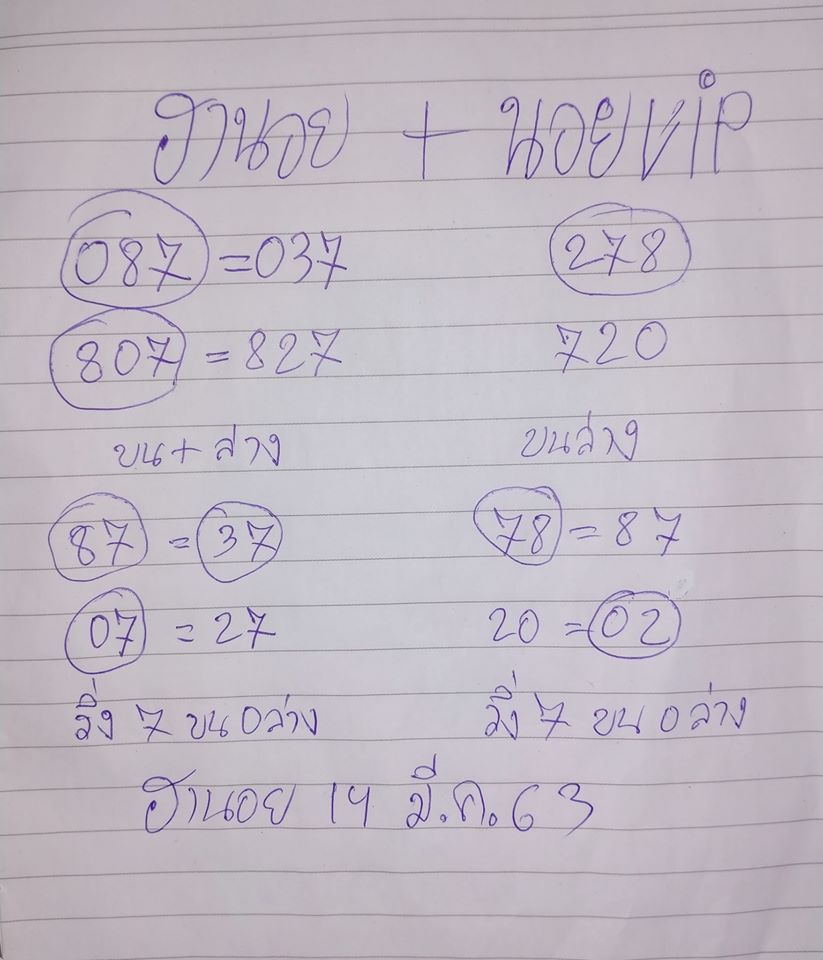 ฮานอย + นอยVIP
087 = 037 278
807 = 827 720
บน + ล่าง บนล่าง
87 = 37 78 = 87
07 = 27 20 = 02
วิ่ง 7 บน 0 ล่าง วิ่ง 7 บน 0 ล่าง
ฮานอย 14 มี.ค.63